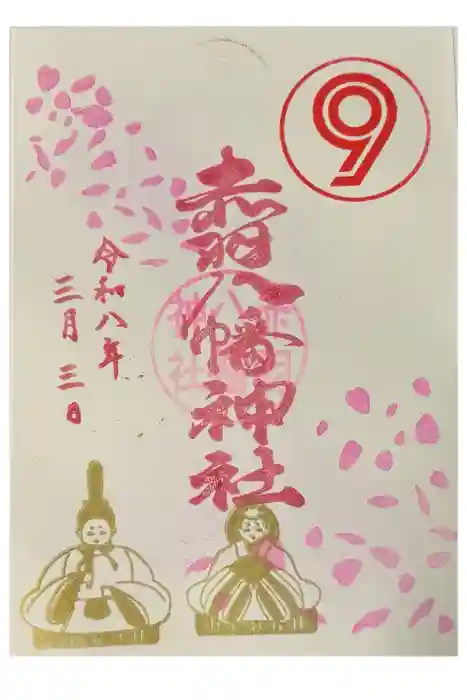 9
赤羽八幡神社
赤羽
八幡
神社
令和八年
三月三日